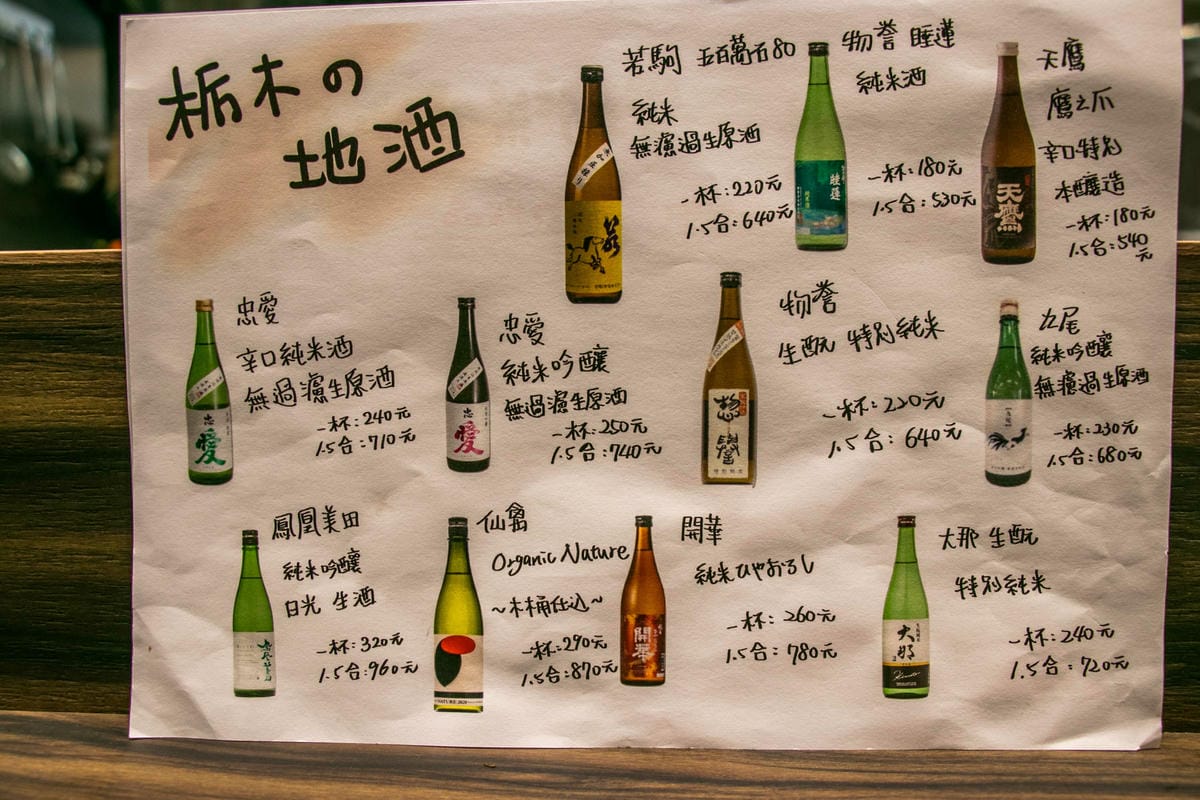 栃木の
地酒
若駒 五百萬石80
純米
無濾過生原酒
一杯:220元
1.5合:640元
物誉 睡蓮
純米酒
一杯:180元
1.5合:530元
天鷹
鷹之爪
辛口特別
本醸造
一杯:180元
1.5合:540
元
忠愛
辛口純米酒
無過濾生原酒
一杯:240元
1.5合:710元
忠愛
純米吟醸
無過濾生原酒
一杯:250元
1.5合:740元
物誉
生酛 特別純米
一杯:220元
1.5合:640元
九尾
純米吟醸
無濾過生原酒
一杯:230元
1.5合:680元
鳳凰美田
純米吟醸
日光 生酒
一杯:320元
1.5合:960元
仙禽
Organic Nature
~木桶仕込~
一杯:290元
1.5合:870元
開華
純米ひやおろし
一杯:260元
1.5合:780元
大那 生酛
特別純米
一杯:240元
1.5合:720元
睡蓮
天鷹
忠
愛
忠
愛
惣譽
開華
大那